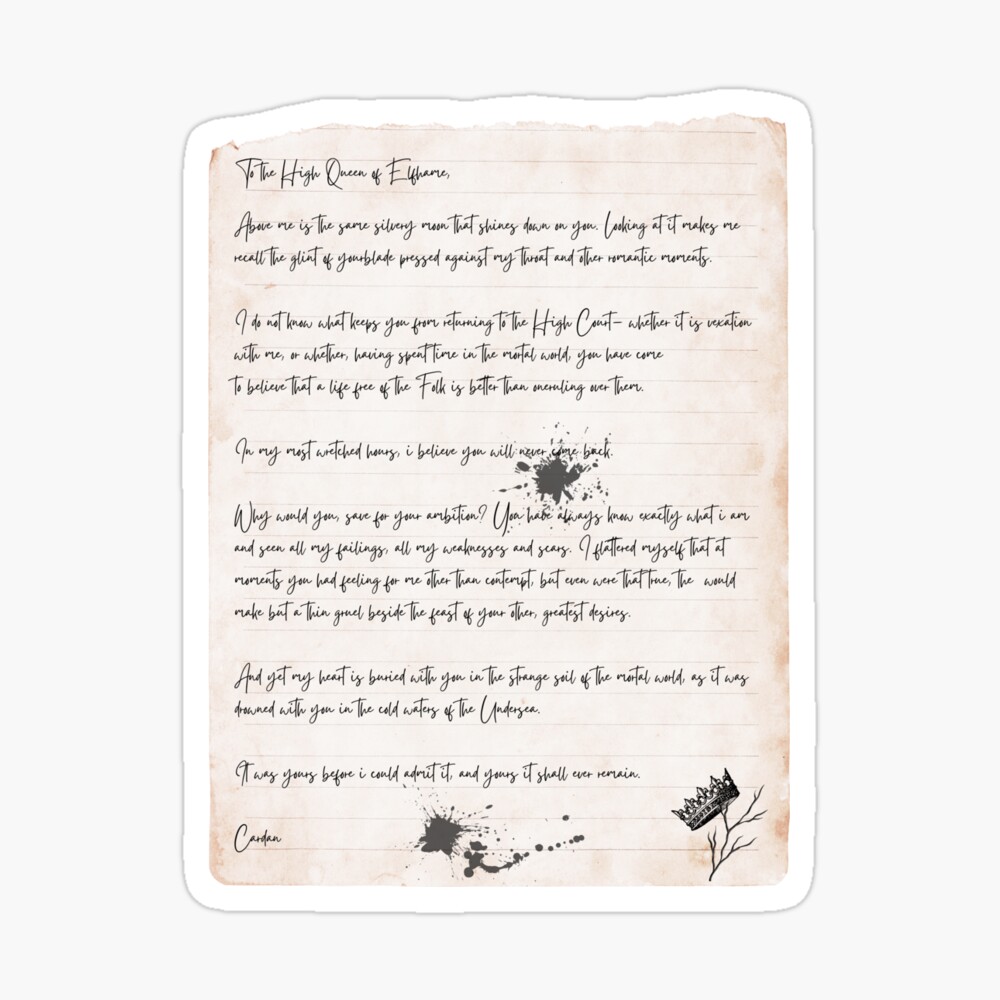 To the High Queen of Elfhame,
Above me is the same silvery moon that shines down on you. Looking at it makes me
recall the glint of yourblade pressed against my throat and other romantic moments.
I do not know what keeps you from returning to the High Court– whether it is vexation
with me, or whether, having spent time in the mortal world, you have come
to believe that a life free of the Folk is better than oneruling over them.
In my most wretched hours, i believe you will never come back.
Why would you, save for your ambition? You have always know exactly what i am
and seen all my failings, all my weaknesses and scars. I flattered myself that at
moments you had feeling for me other than contempt, but even were that true, the would
make but a thin gruel beside the feast of your other, greatest desires.
And yet my heart is buried with you in the strange soil of the mortal world, as it was
drowned with you in the cold waters of the Undersea.
It was yours before i could admit it, and yours it shall ever remain.
Cardan